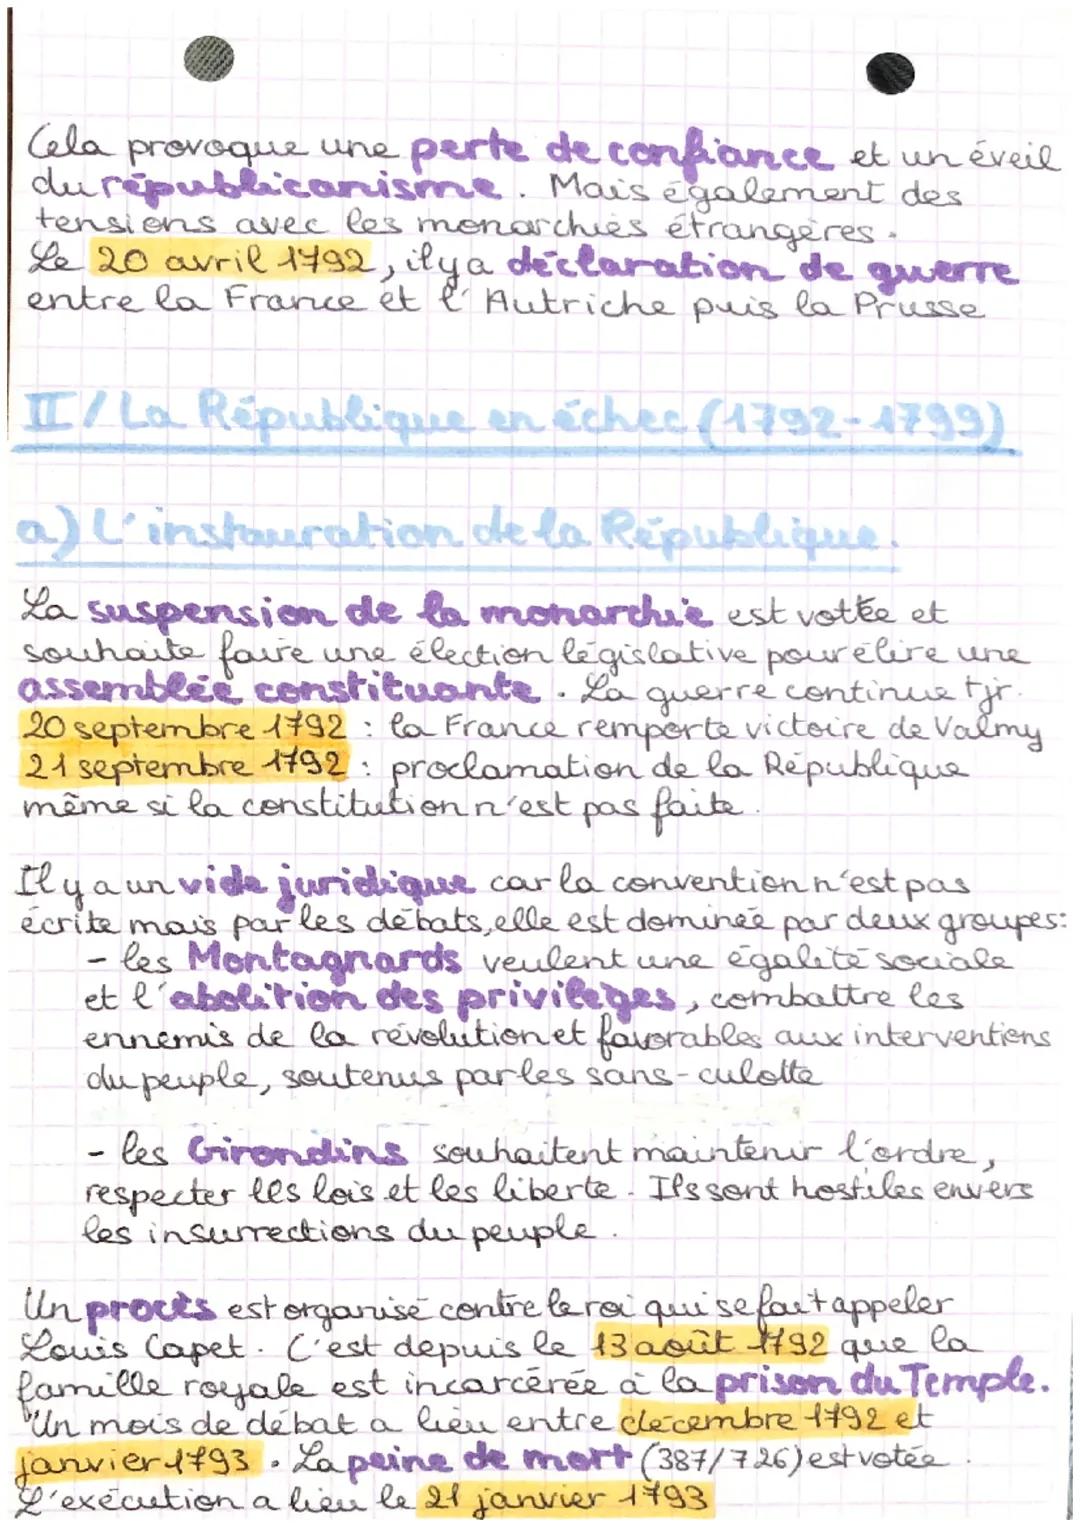 Cela provoque une perte de confiance et un éveil
du républicanisme. Mais également des
tensions avec les monarchies étrangères.
Le 20 avril 1792, il y a déclaration de guerre
entre la France et l'Autriche puis la Prusse
II/ La République en échec (1792-1799)
a) L'instauration de la République.
La suspension de la monarchie est votée et
souhaite faire une élection législative pour élire une
assemblée constituante. La guerre continue tjr.
20 septembre 1792 : la France remporte victoire de Valmy
21 septembre 1792 : proclamation de la République
même si la constitution n'est pas faite.
Il y a un vide juridique car la convention n'est pas
écrite mais par les débats, elle est dominée par deux groupes:
- les Montagnards veulent une égalité sociale
et l'abolition des privilèges, combattre les
ennemis de la révolution et favorables aux interventions
du peuple, soutenus par les sans-culotte
- les Girondins souhaitent maintenir l'ordre,
respecter les lois et les liberté. Ils sont hostiles envers
les insurrections du peuple.
Un procès est organisé contre le roi qui se fait appeler
Louis Capet. C'est depuis le 13 août 1792 que la
famille royale est incarcérée à la prison du Temple.
Un mois de débat a lieu entre décembre 1792 et
janvier 1793. La peine de mort (387/726) est votée.
L'exécution a lieu le 21 janvier 1793